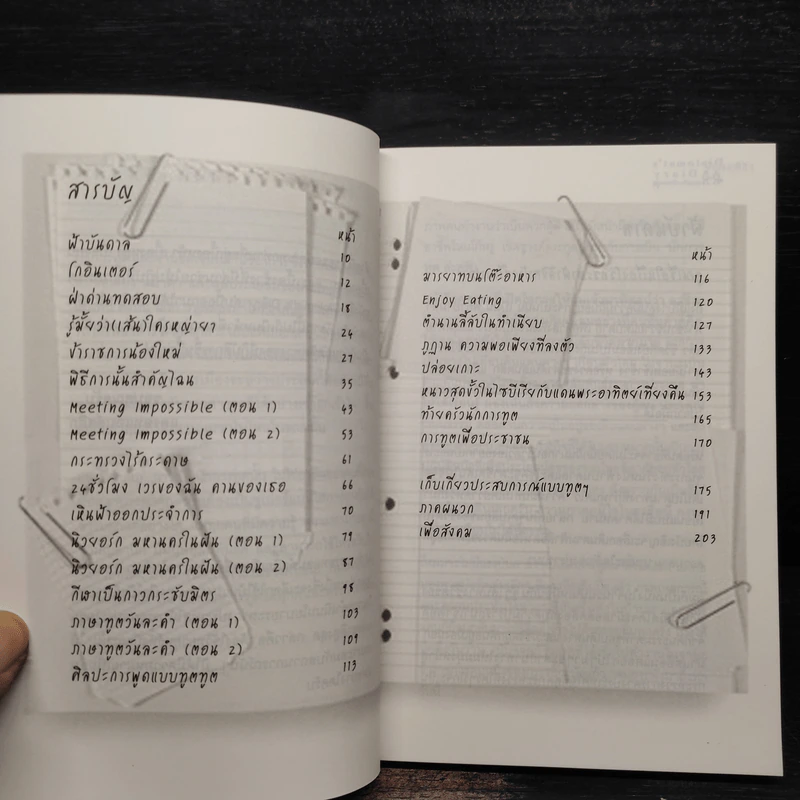 สารบัญ
หน้า
ฟ้าบันดาล 10
โกอินเตอร์ 12
ฝ่าด่านทดสอบ 18
รู้มั้ยว่า(เส้น)ใครหญ่ายๆ 24
ข้าราชการน้องใหม่ 27
พิธีการนั้นสำคัญไฉน 35
Meeting Impossible (ตอน 1) 43
Meeting Impossible (ตอน 2) 53
กระทรวงไร้กระดาษ 61
24ชั่วโมง เวรของฉัน คานของเธอ 66
เหินฟ้าออกประจำการ 70
นิวยอร์ก มหานครในฝัน (ตอน 1) 79
นิวยอร์ก มหานครในฝัน (ตอน 2) 87
กีฬาเป็นกาวกระชับมิตร 98
ภาษาทูตวันละคำ (ตอน 1) 103
ภาษาทูตวันละคำ (ตอน 2) 109
ศิลปะการพูดแบบทูตทูต 113
หน้า
มารยาทบนโต๊ะอาหาร 116
Enjoy Eating 120
ตำนานลี้ลับในทำเนียบ 127
ภูฏาน ความพอเพียงที่ลงตัว 133
ปล่อยเกาะ 143
หนาวสุดขั้วในไซบีเรียกับแดนพระอาทิตย์เที่ยงคืน 153
ท้ายครัวนักการทูต 165
การทูตเพื่อประชาชน 170
เก็บเกี่ยวประสบการณ์แบบทูตๆ 175
ภาคผนวก 191
เพื่อสังคม 203